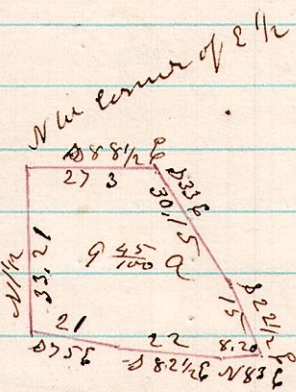 NW corner of E 1/2
S 88 1/2 E
27 3
S 33 E
30,15
N 1 1/2
33,21
9 45/100 a
S 22 1/2 E
15
21
S 75 E
22
S 82 1/2 E
8.20
N 83 E